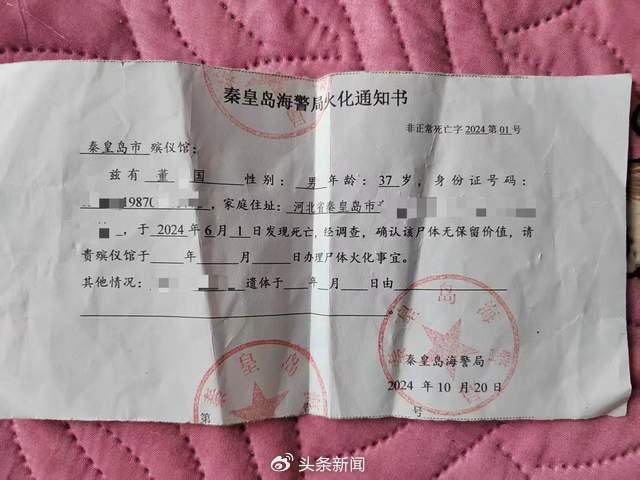 秦皇岛海警局火化通知书
非正常死亡字 2024 第 01 号
秦皇岛市 殡仪馆:
兹有 董 国 性别: 男 年龄: 37 岁, 身份证号码:
1987 , 家庭住址: 河北省秦皇岛市
, 于 2024 年 6 月 1 日发现死亡, 经调查, 确认该尸体无保留价值, 请
贵殡仪馆于 年 月 日办理尸体火化事宜。
其他情况: 遗体于 年 月 日由
。
秦皇岛海警局
2024 年 10 月 20 日
第 号
皇岛海
皇岛
头条新闻